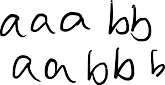 a a a bb
a a b b b